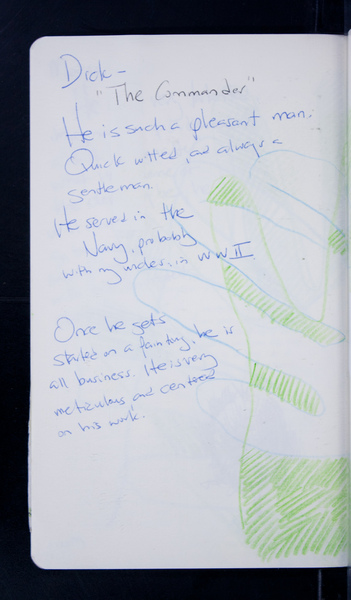 Dick -
"The Commander"
He is such a pleasant man.
Quick witted, and always a
gentleman.
He served in the
Navy, probably
with my uncles, in WW II
Once he gets
started on a painting, he is
all business. He is very
meticulous and centered
on his work.